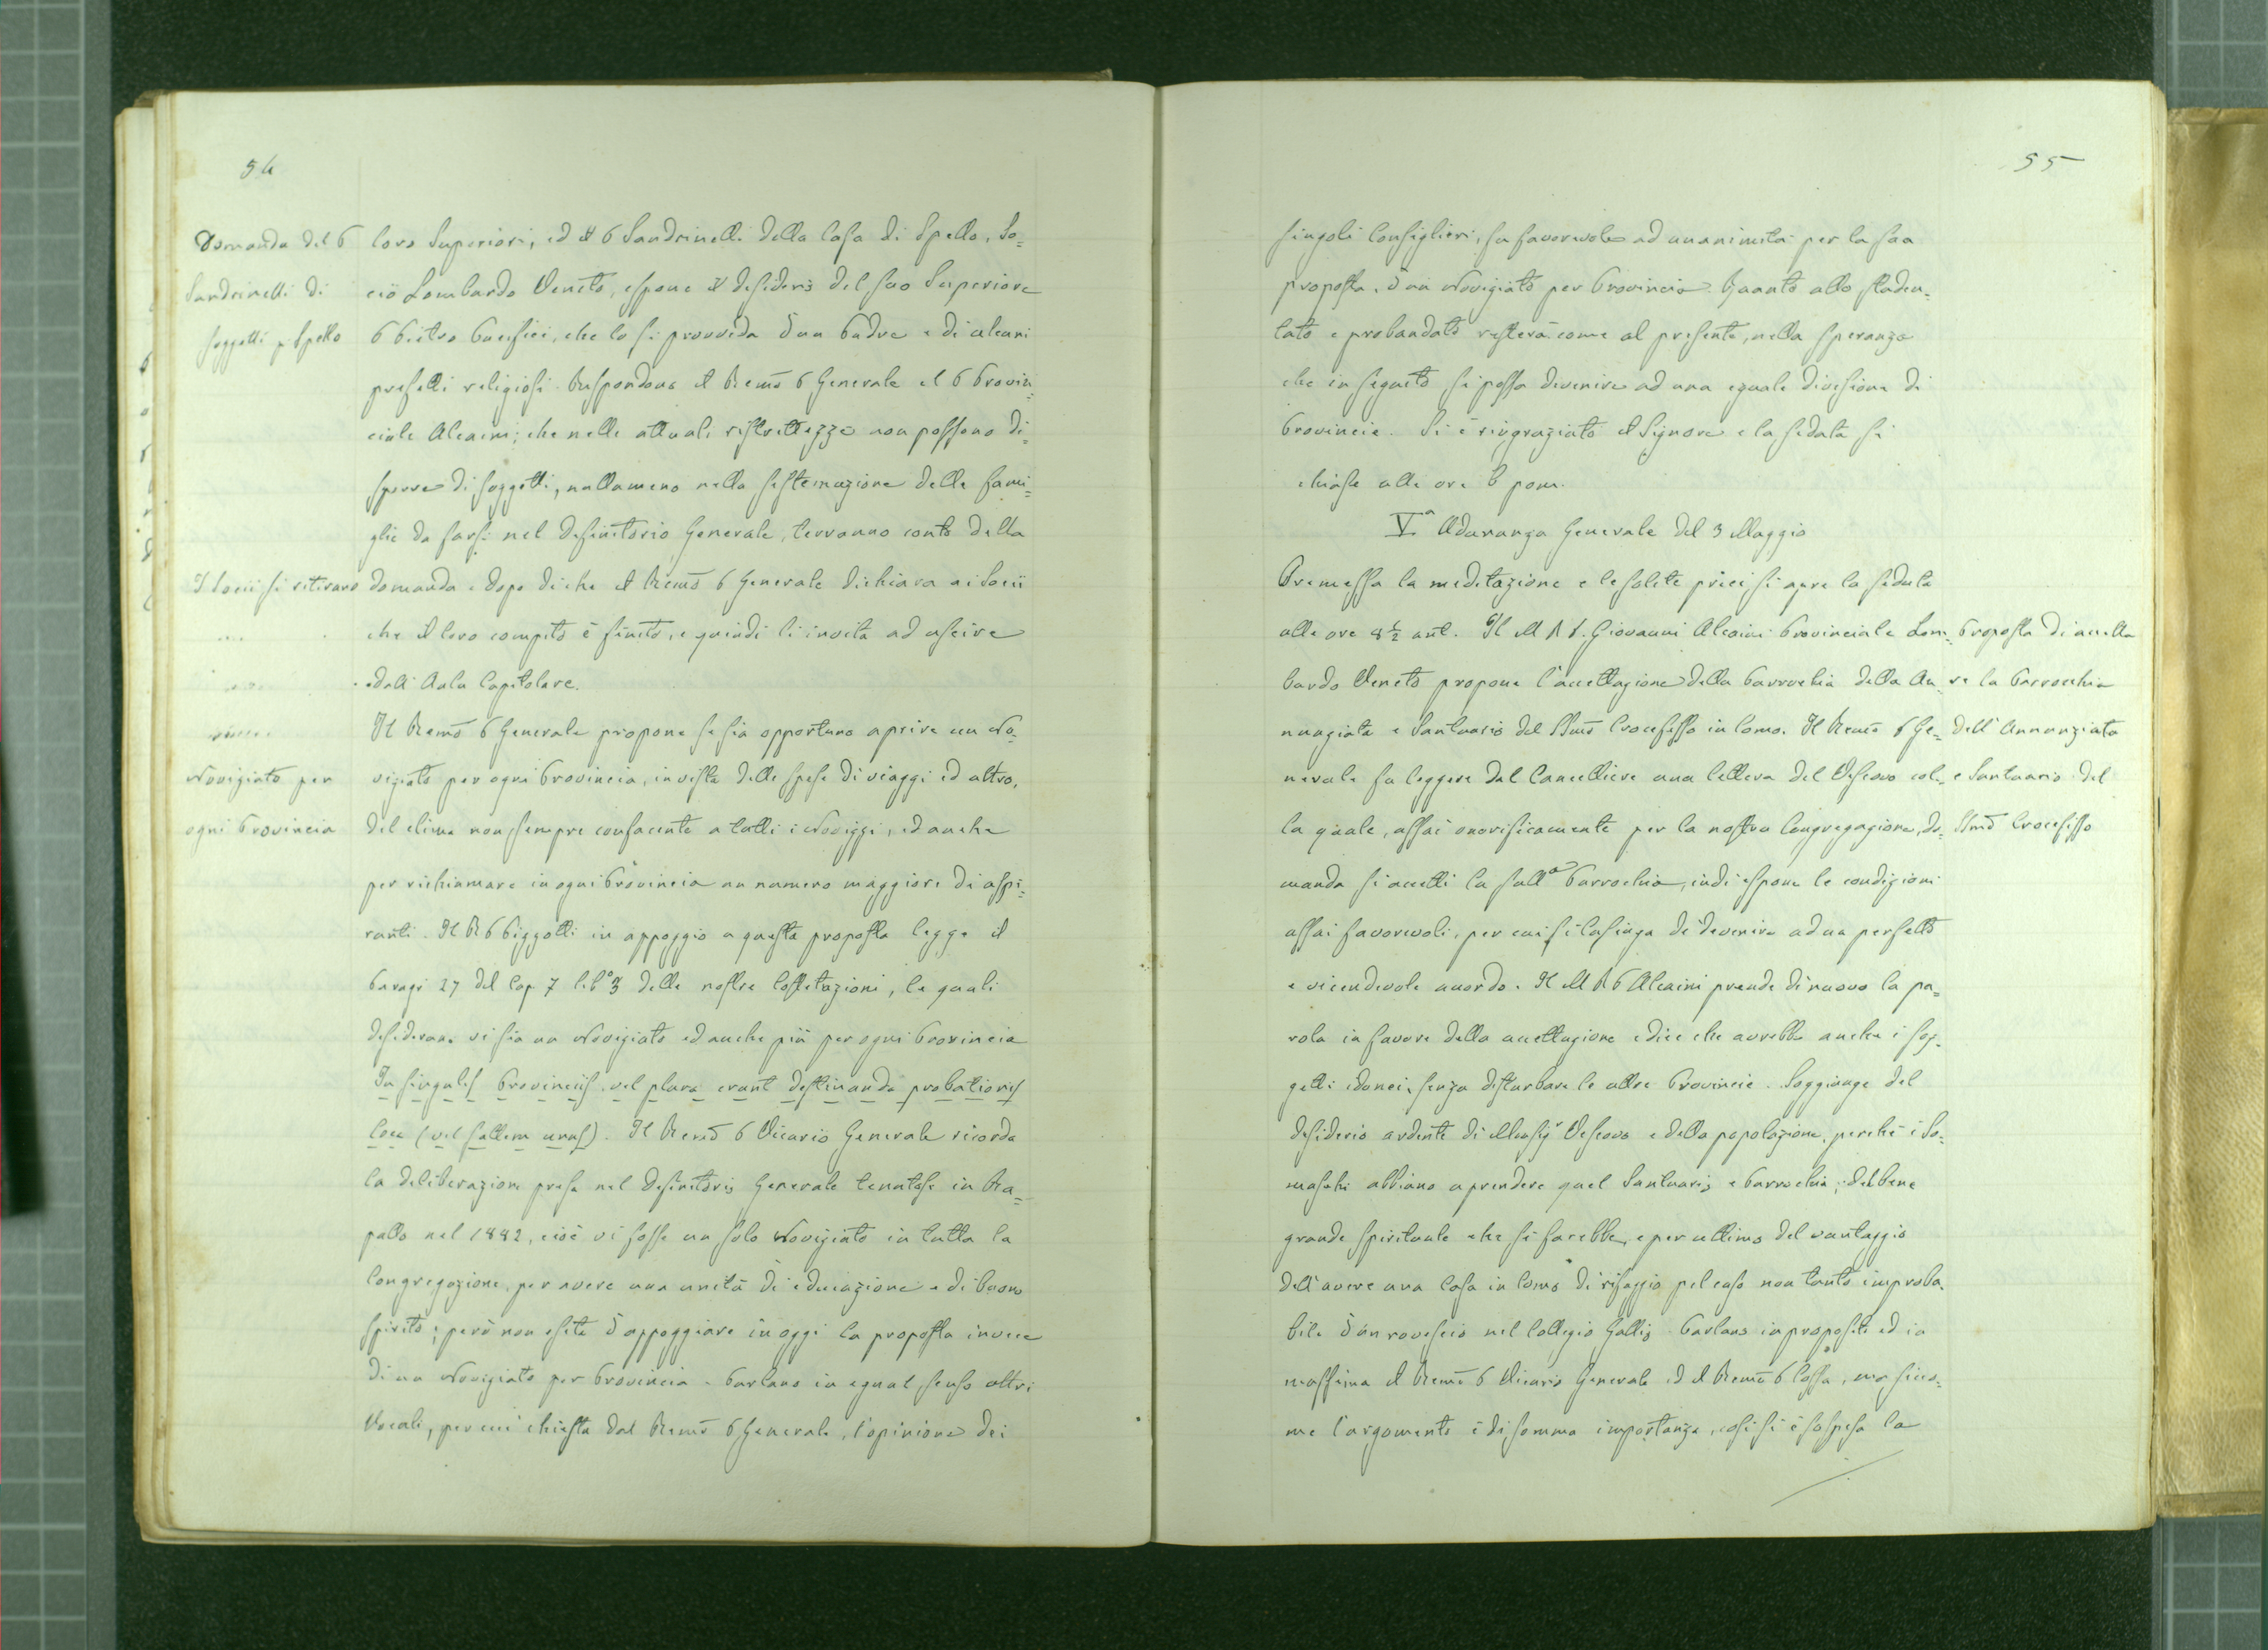 54
Domanda del P
Sandrinelli di
soggetti p. Spello
loro Superiori, ed il P Sandrinelli della Casa di Spello, So=
cio Lombardo Veneto, espone il desiderio del suo Superiore
P Pietro Pacifici, che lo si provveda d'un Padre e di alcuni
prefetti religiosi. Rispondono il Remo P Generale el P Provin=
ciale Alcaini; che nelle attuali ristrettezze non possono di=
sporre di soggetti, nullameno nella sistemazione delle fami=
glie da farsi nel Definitorio Generale, terranno conto della
I Socii si ritirano
domanda e dopo di che il Remo P Generale dichiara ai Socii
che il loro compito è finito, e quindi li invita ad uscire
dall'Aula Capitolare.
Il Remo P Generale propone se sia opportuno aprire un No=
Novigiato per
ogni Provincia
vigiato per ogni Provincia, in vista delle spese di viaggi ed altro,
del clima non sempre confacente a tutti i Novizzi, ed anche
per richiamare in ogni Provincia un numero maggiore di aspi=
ranti. Il R P Pizzotti in appoggio a questa proposta legge il
Paragr 27 del Cap 7 lib° 3 delle nostre Costitazioni, le quali
desiderano vi sia un Novigiato ed anche più per ogni Provincia
In singulis Provinciis vel plura erunt destinanda probationis
loca (vel saltem unus). Il Remo P Vicario Generale ricorda
la deliberazione presa nel Definitorio Generale tenutosi in Ra=
pallo nel 1882, cioè vi fosse un solo Novigiato in tutta la
Congregazione, per avere una unità di educazione e di buono
spirito; però non esita d'appoggiare in oggi la proposta invece
di un Novigiato per Provincia. Parlano in egual senso altri
Vocali, per cui chiesta dal Remo P Generale, l'opinione dei
55
singoli Consiglieri, fu favorevole ad unanimità per la sua
proposta, d'un Novigiato per Provincia. Quanto allo studen=
tato e probandato resterà come al presente, nella speranza
che in seguito si possa devenire ad una eguale divisione di
Provincie. Si è ringraziato il Signore e la seduta si
chiuse alle ore 6 pom.
V.a Adunanza Generale del 3 Maggio
Premessa la meditazione e le solite preci si apre la seduta
alle ore 8 1/2 ant. Il M R P. Giovanni Alcaini Provinciale Lom=
bardo Veneto propone l'accettazione della Parrochia della An=
nungiata e Santuario del SSmo Crocefisso in Como. Il Remo P Ge=
nerale fa leggere dal Cancelliere una lettera del Vescovo col=
la quale, assai onorificamente per la nostra Congregazione, do=
Proposta di accetta
re la Parrocchia
dell'Annunziata
e Santuario del
SSmo Crocefisso
manda si accetti la sudd.a Parrochia, indi espone le condizioni
assai favorevoli, per cui si lusinga di devenire ad un perfetto
e vicendevole accordo. Il M R P Alcaini prende di nuovo la pa=
rola in favore della accettazione e dice che avrebbe anche i sog=
getti idonei, senza disturbare le altre Provincie. Soggiunge del
desiderio ardente di Monsigr Vescovo e della popolazione, perchè i So=
maschi abbiano a prendere quel Santuario e Parrochia; del bene
grande spirituale che si farebbe, e per ultimo del vantaggio
dell'avere una Casa in Como di rifuggio pel caso non tanto improba=
bile d'un rovescio nel Collegio Gallio. Parlano in proposito ed in
massima il Remo P Vicario Generale ed il Remo P Cossa, ma sicco=
me l'argomento è di somma importanza, così si è sospesa la